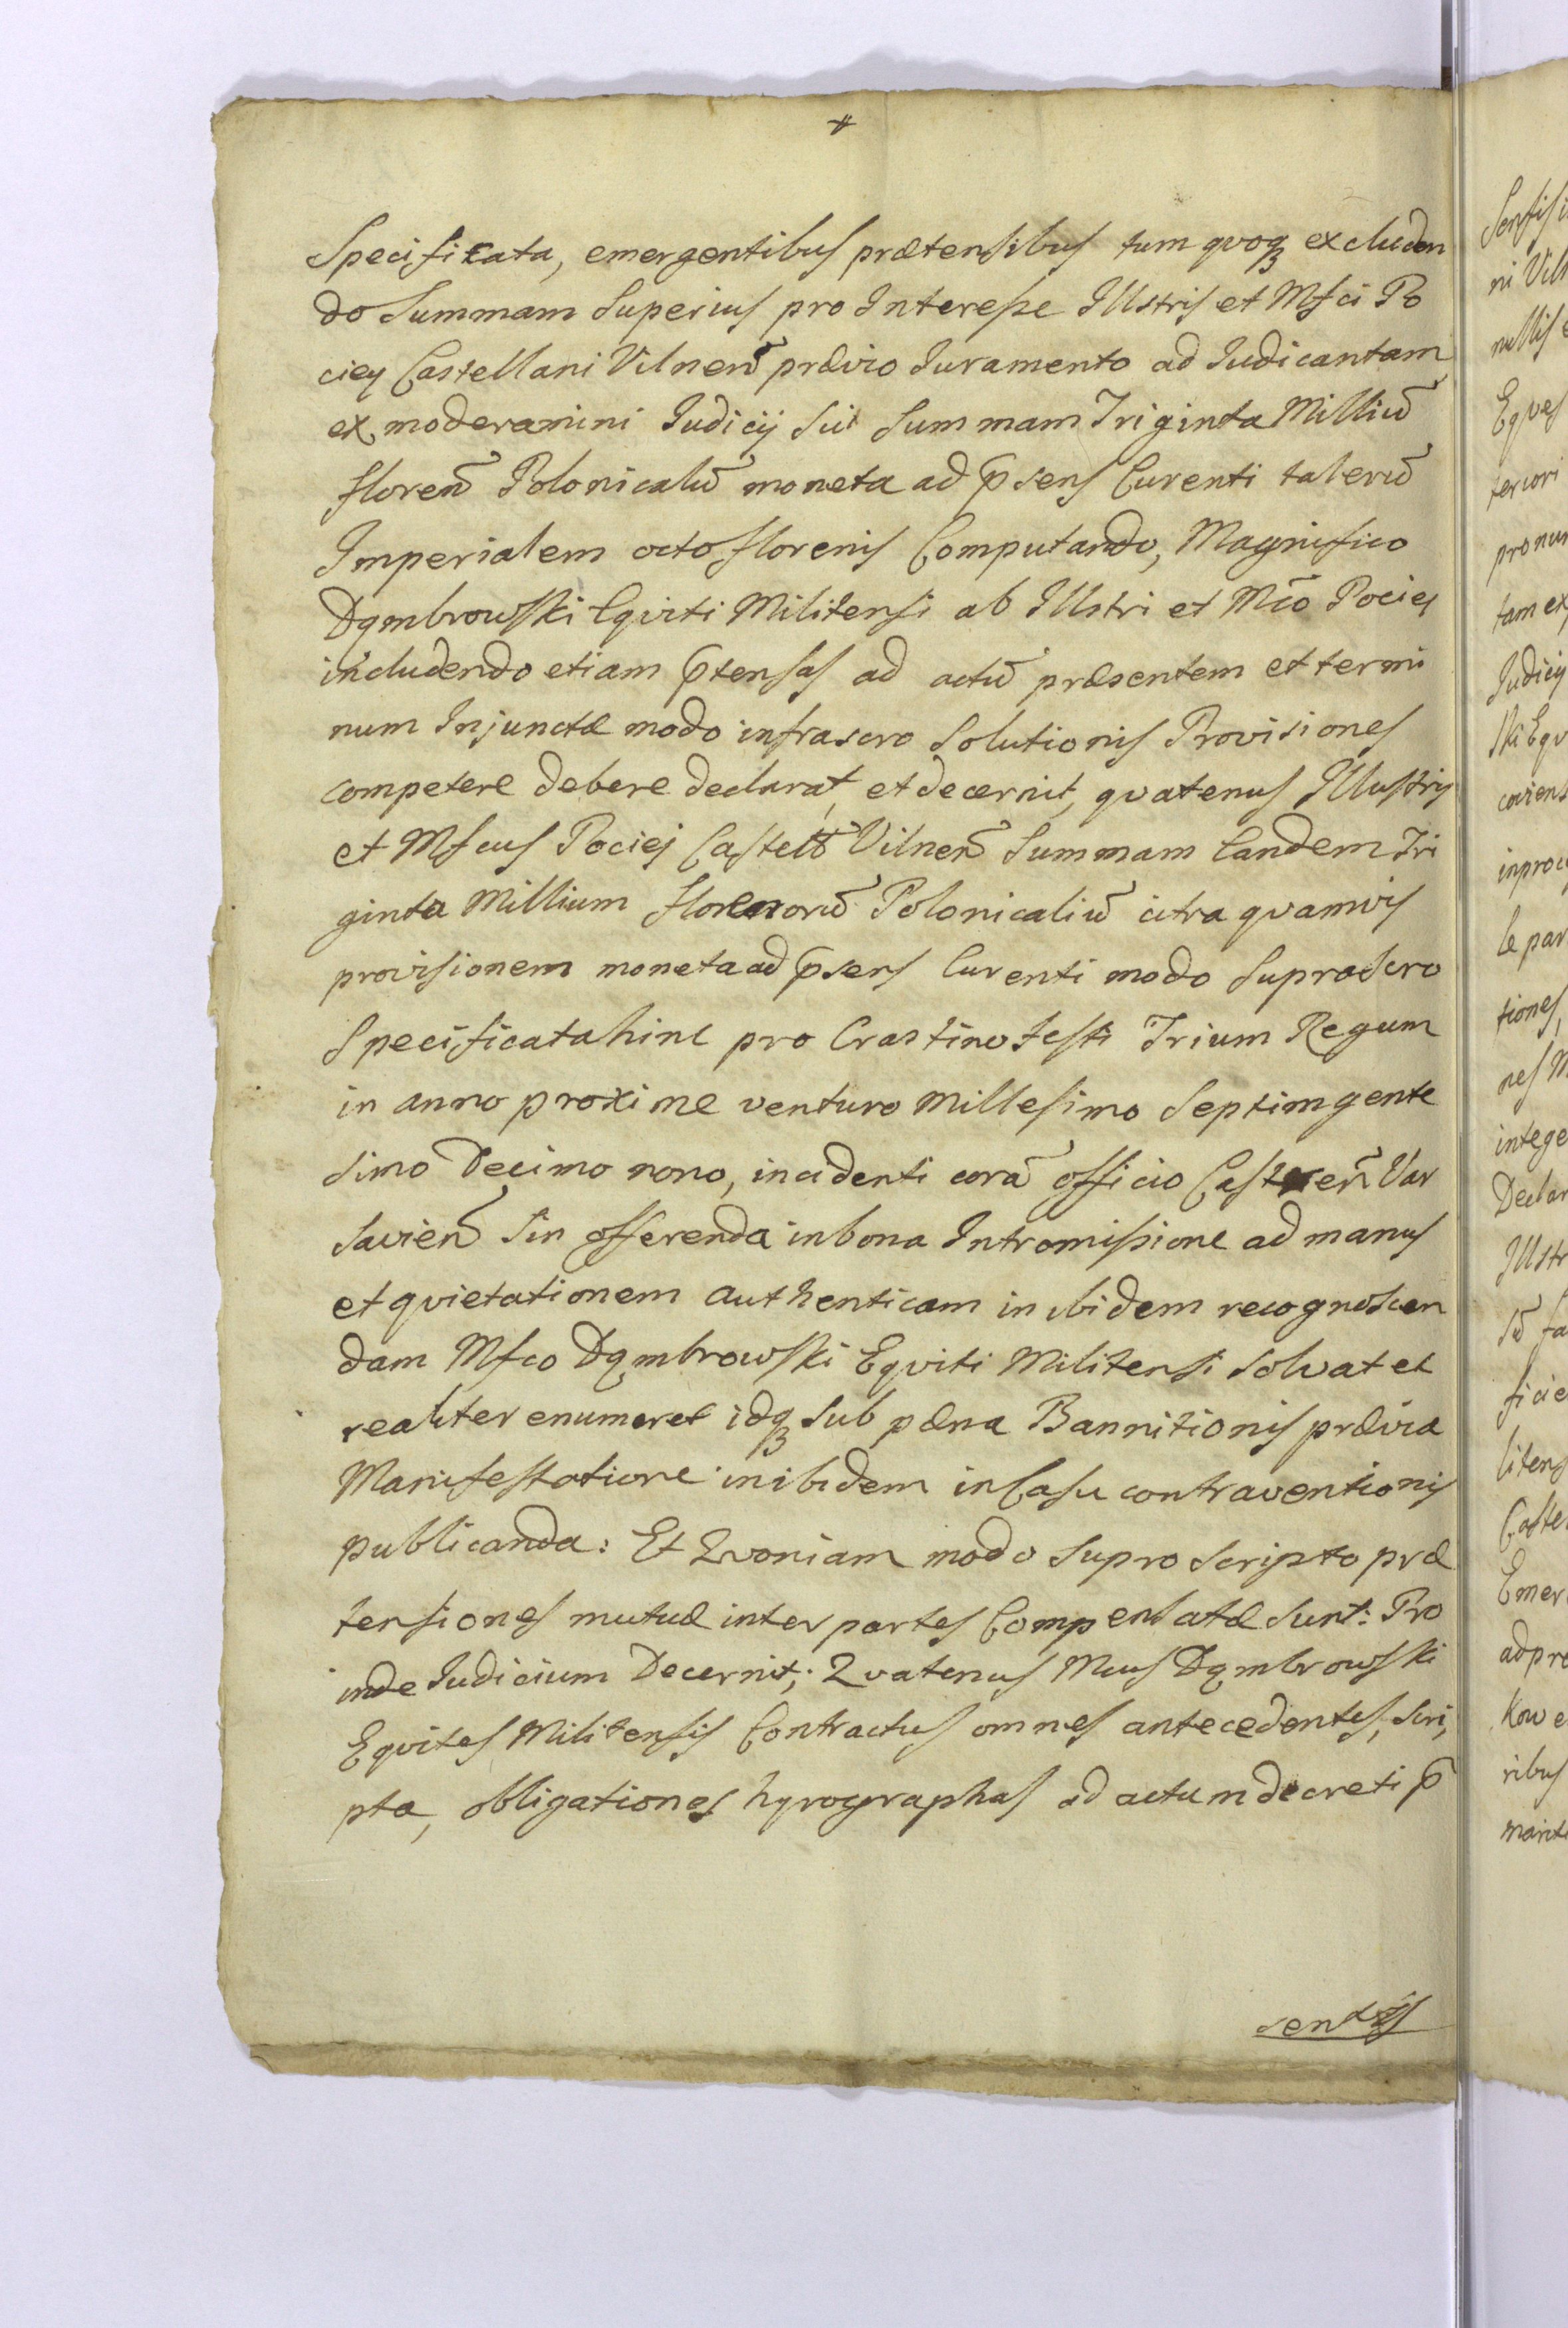 #
Specificata, emergentibus prætensibus tum quoqꝫ excluden
do Summam Superius pro Interesse Illstris et Mfci Po
ciey Castellani Vilneñ prævio Iuramento ad Iudicantam
ex moderamini Iudicij sui Summam Triginta Milliũ
floreñ Polonicaliũ moneta ad p̃sens Curenti talerũ
Imperialem octo florenis Computando, Magnifico
Dąmbrowski Eqviti Militensi ab Illstri et Mc̃o Pociey
includendo etiam p̃tensas ad actũ præsentem et termi
num Injunctæ modo infrascro Solutionis Provisiones
competere debere declarat, et decernit, qvatenus Illustris
et Mfcus Pociej Castell̃ Vilneñ Summam Eandem Tri
ginta Millium florenorũ Polonicaliũ citra qvamvis
provisionem moneta ad p̃sens Curenti modo Suprascro
Specificata hinc pro Crastino festi Trium Regum
in anno proxime venturo Millesimo Septimgente
simo Decimo nono, incidenti corã officio Castreñ Var
savieñ Sin offerenda in bona Intromissione ad manus
et qvietationem authenticam in ibidem recognoscen
dam Mfco Dąmbrowski Eqviti Militensi Solvat et
realiter enumeret idqꝫ Sub pæna Bannitionis prævia
Manifestatione inibidem in Casu contraventionis
publicanda: Et Qvoniam modo supro scripto præ
tensiones mutuæ inter partes Compensatæ Sunt: Pro
inde Iudicium Decernit; Qvatenus Mcus Dąmbrowski
Eqvites Militensis Contractus omnes antecedentes, scri,
pta, obligationes hyrographas ad actum decreti p̃
Eqves
pronun
tam ex
Iudicij
ski Eqv
le par
tiones,
intege
Declar
Illstr
ficie
Caste
Emer
ad pro
ribus